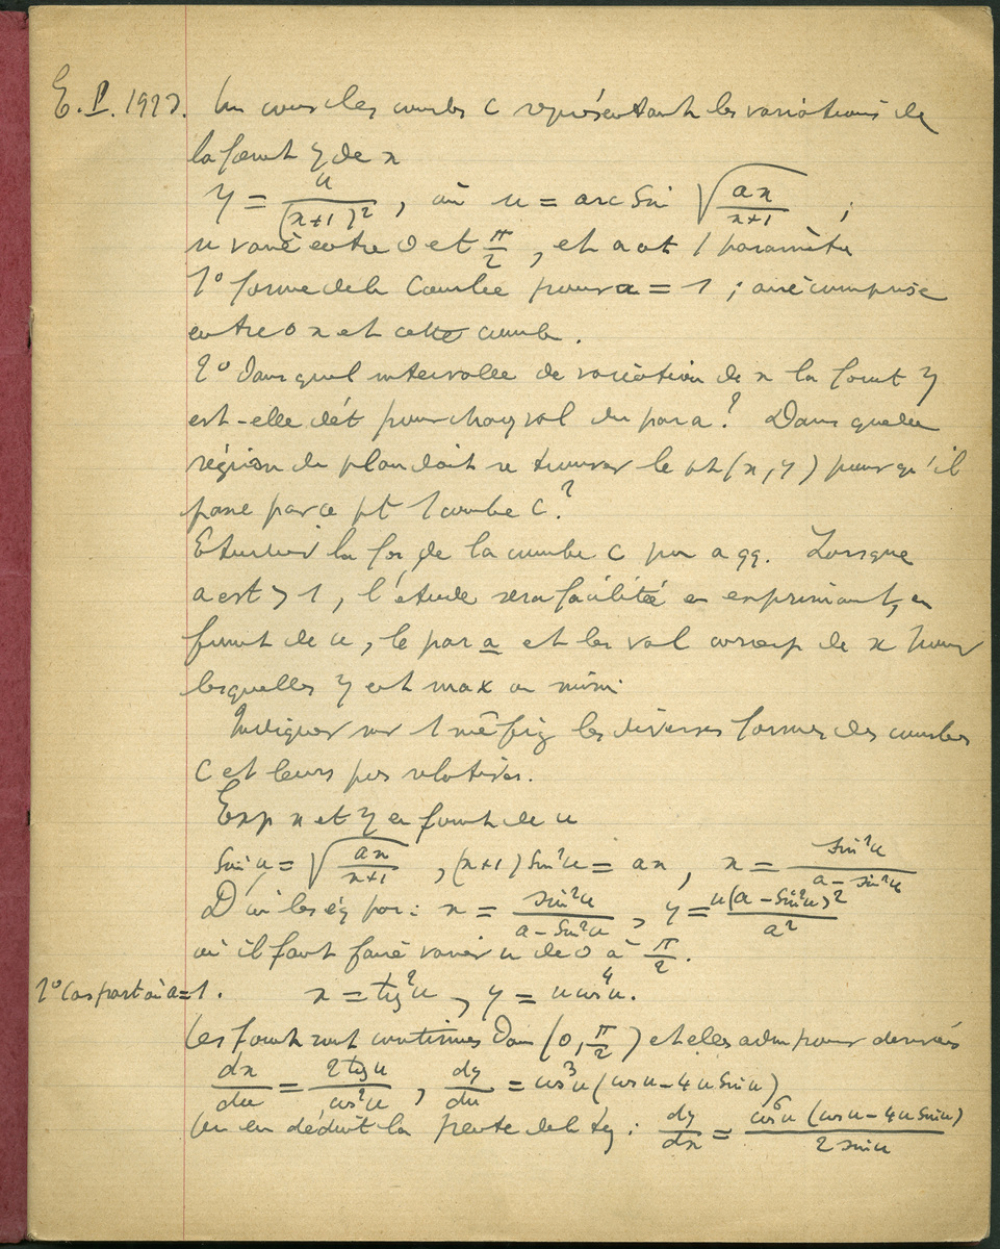 E. P. 1923. On cons les courbes C représentant les variations de
la fonct y de x
y = u/(x+1)², où u = arc sin √(ax/(x+1)) ;
u varie entre 0 et π/2, et a est 1 paramètre
1° forme de la courbe pour a = 1 ; aire comprise
entre o x et cette courbe.
2° Dans quel intervalle de variation de x la fonct y
est-elle dét pour chaq val du par a ? Dans quelle
région du plan doit se trouver le pt (x, y) pour qu'il
passe par ce pt 1 courbe C ?
Etudier la for de la courbe C pour a qq. Lorsque
a est > 1, l'étude sera facilitée en exprimant, en
fonct de u, le par a et les val corresp de x pour
lesquelles y est max ou mini
Indiquer sur 1 mê fig les diverses formes des courbes
C et leurs pos relatives.
Exp x et y en fonct de u
sin u = √(ax/(x+1)), (x+1) sin²u = ax, x = sin²u/(a – sin²u)
D'où les éq par : x = sin²u/(a – sin²u), y = u(a – sin²u)²/a²
où il faut faire varier u de 0 à π/2.
1° Cas part où a=1. x = tg²u, y = u cos⁴u.
Ces fonct sont continues dans (0, π/2) et elles adm pour dérivées
dx/du = 2 tg u/cos²u, dy/du = cos³u (cos u – 4u sin u)
On en déduit la pente de la tg : dy/dx = cos⁶u (cos u – 4u sin u)/2 sin u